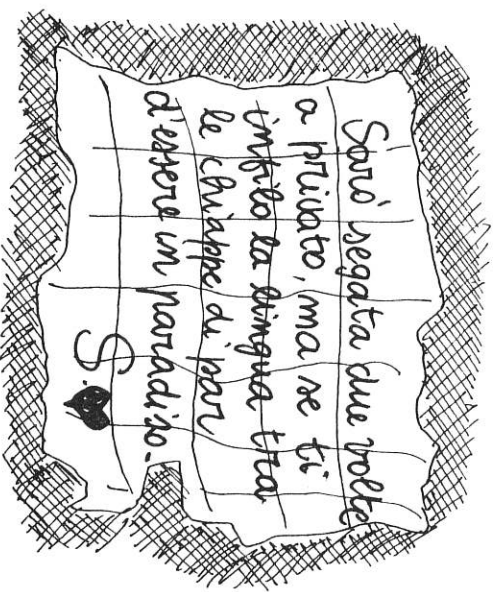 Sarò segata due volte
a privato, ma se ti
infilo la lingua tra
le chiappe di par
d'essere in paradiso.
S.